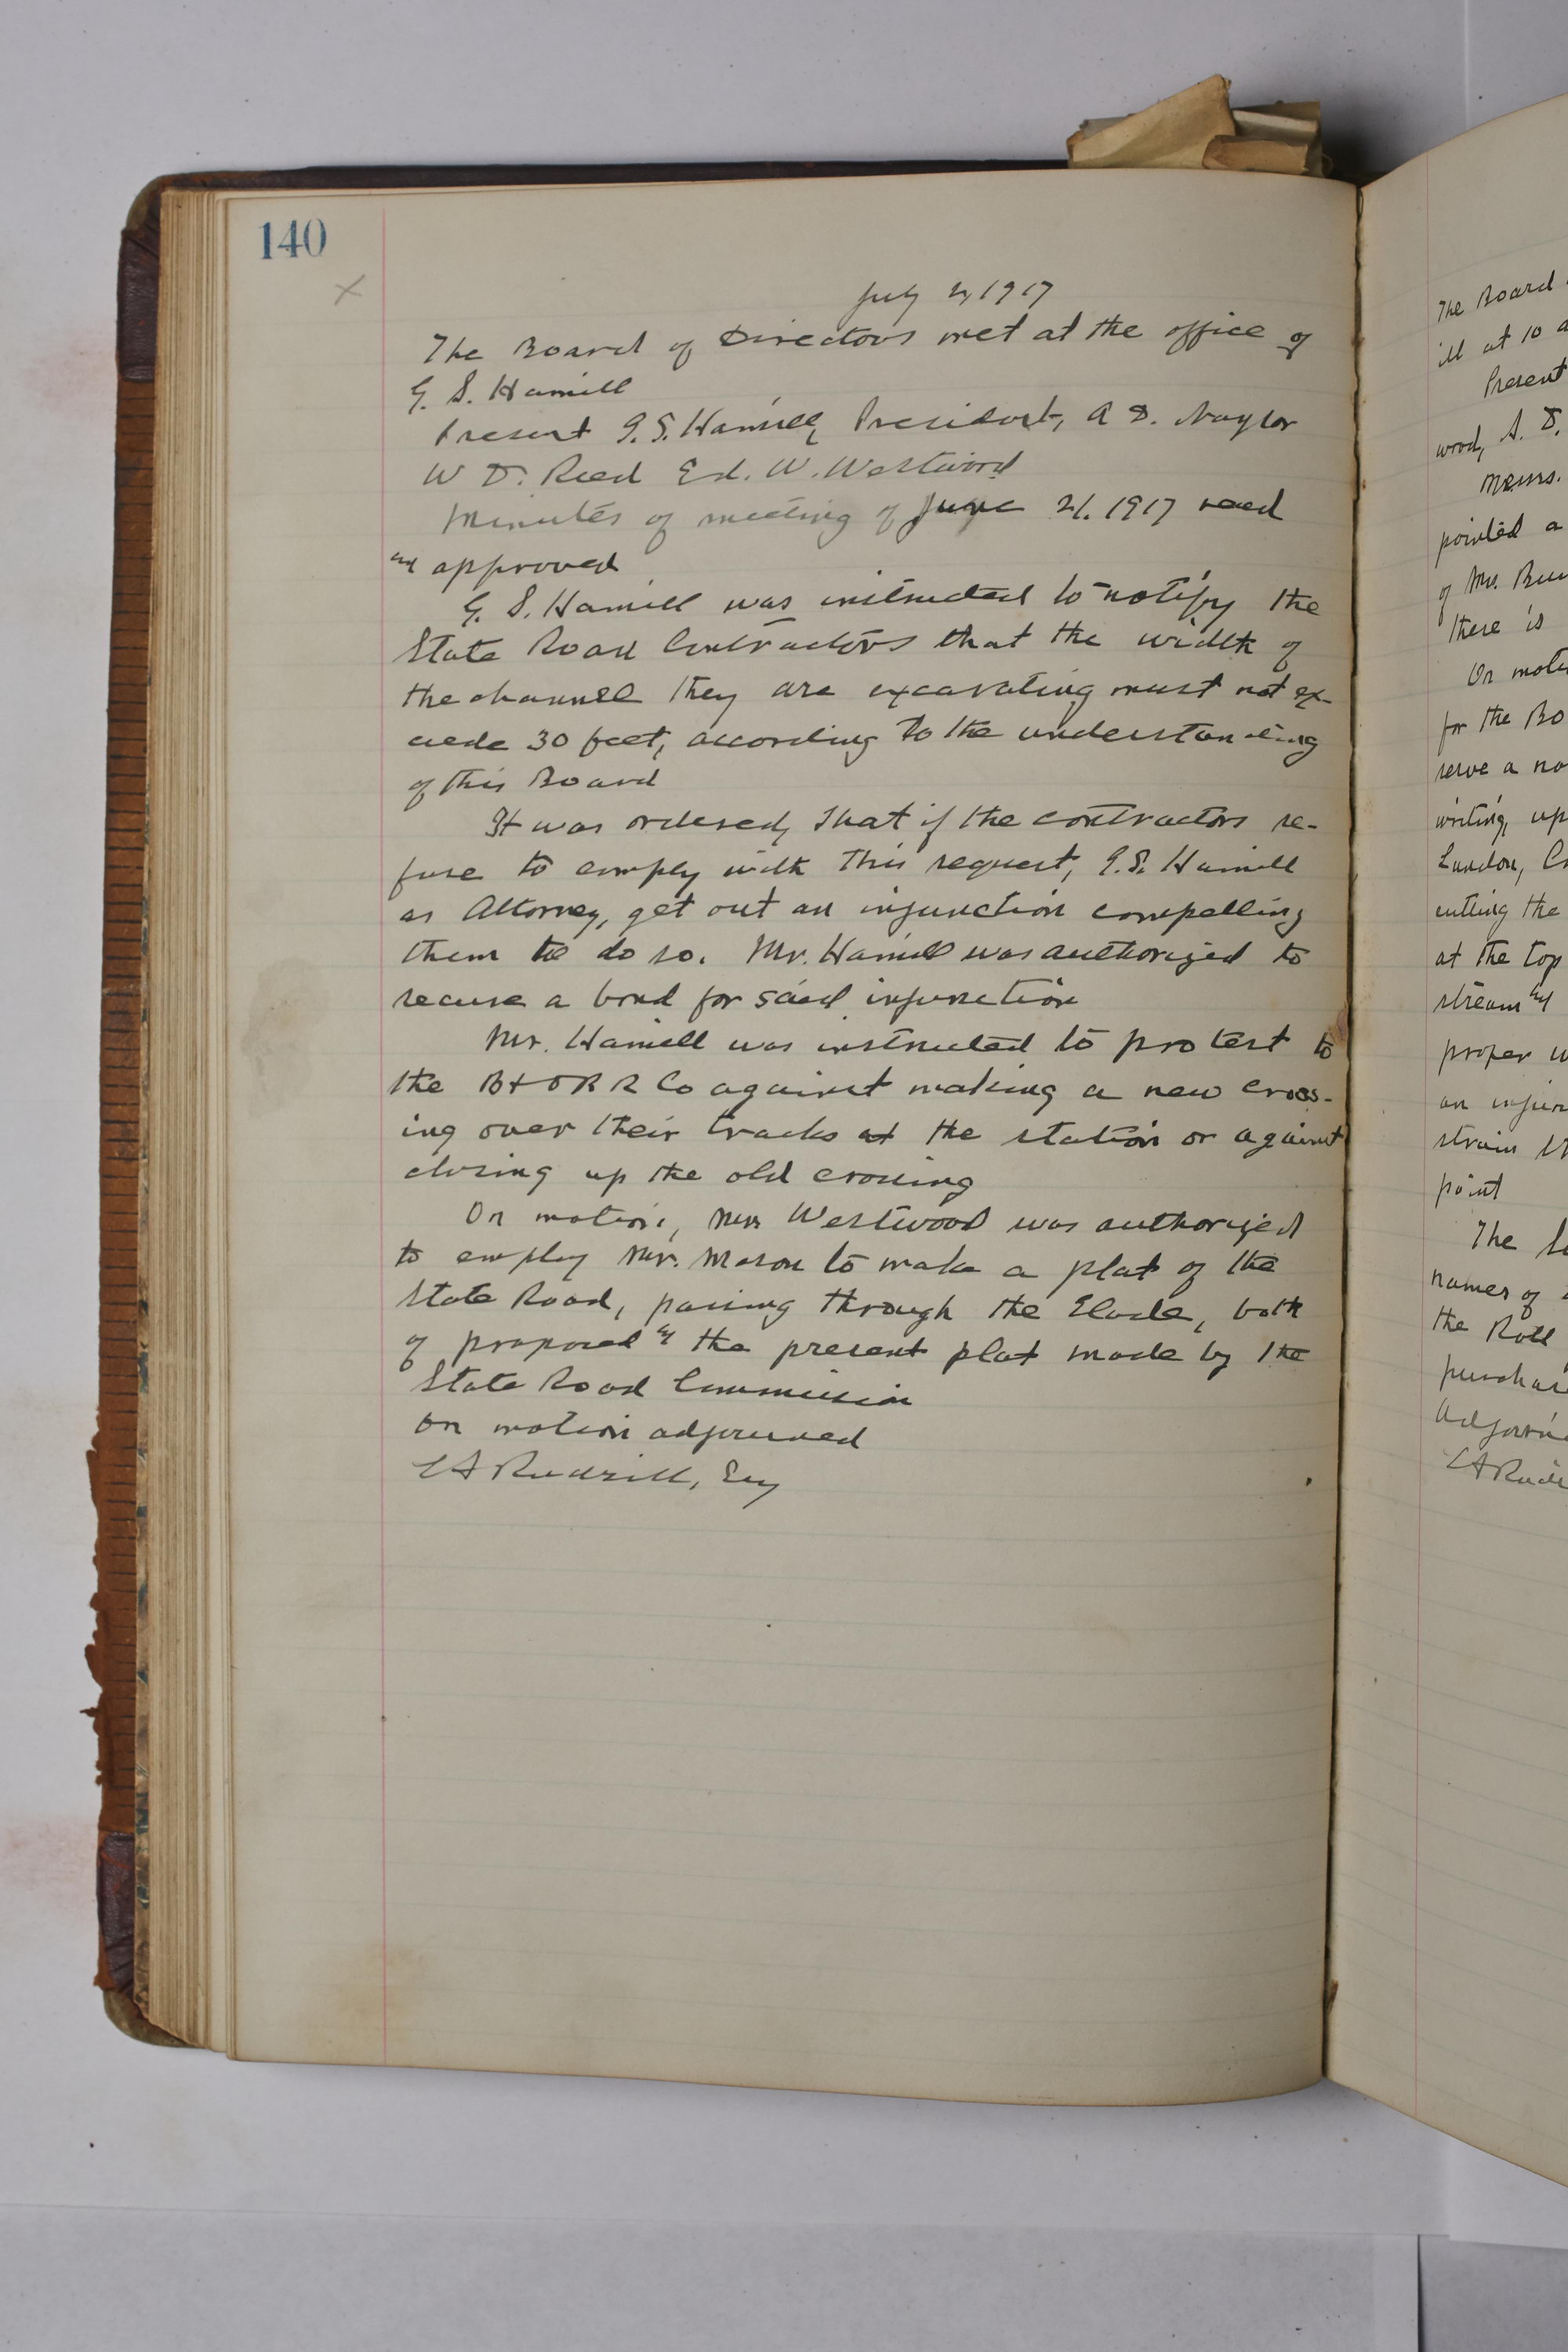 140
July 2, 1917
The Board of Directors met at the office of
G. S. Hamill
Present G. S. Hamill, President, A D. Naylor
W D. Reed Ed. W. Westwood
Minutes of meeting of June 21. 1917 read
and approved
G. S. Hamill was instructed to notify the
State Road Contractors that the width of
the channel they are excavating must not ex-
cede 30 feet, according to the understanding
of this Board
It was ordered, that if the contractors re-
fuse to comply with this request, G. S. Hamill
as Attorney, get out an injunction compelling
them to do so. Mr. Hamill was authorized to
secure a bond for said injunction
Mr. Hamill was instructed to protest to
the B & O R R Co against making a new cross-
ing over their tracks at the station or against
closing up the old crossing
On motion, Westwood was authorized
to employ Mr. Mason to make a plat of the
State Road, passing through the Slade, both
of proposed & the present plat made by the
State Road Commission
On motion adjourned
The Board
ill at 10 a
Present
wood, A. D.
Messrs.
pointed a
of Mr.
there is
On moti
for the Bo
serve a no
writing, up
London,
cutting the
at the top
stream &
proper
an injun
strain St
point
The
names of
the Roll
purchas
Adjourne